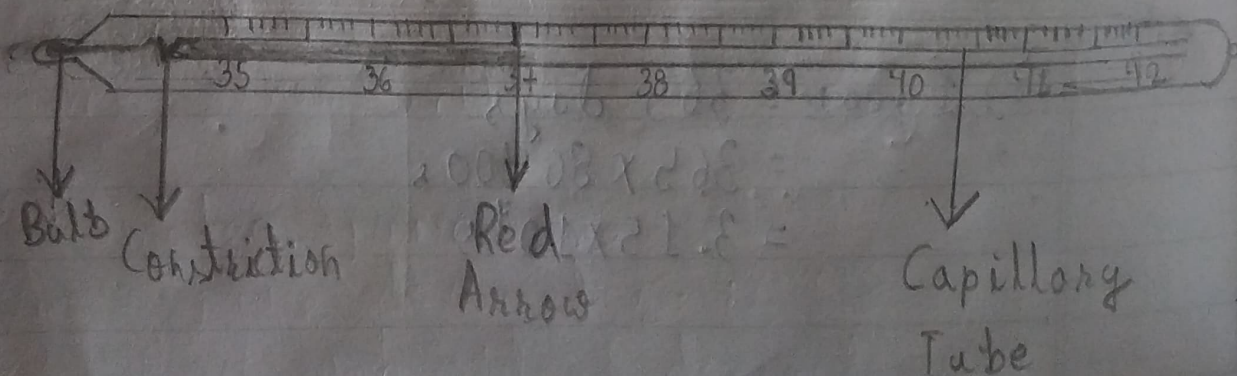 35 36 37 38 39 40 41 42
Bulb
Constriction
Red
Arrow
Capillary
Tube